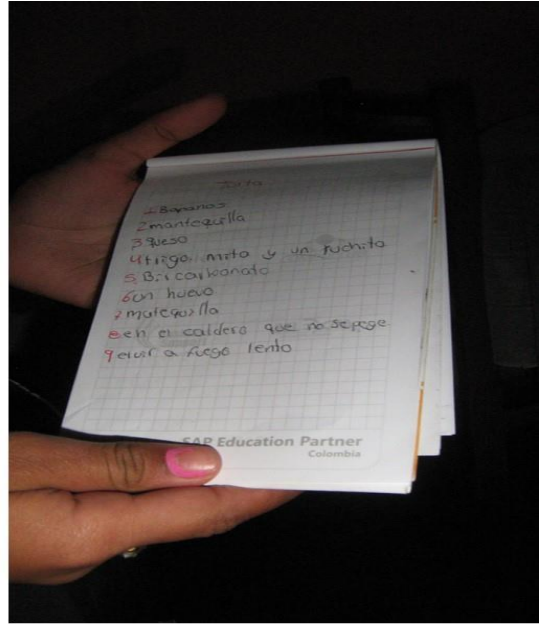 Torta
1 Bananos
2 mantequilla
3 queso
4 trigo mito y un puchito
5 Bircarbonato
6 un huevo
7 matequilla
8 en el caldero que no se pege
9 a fuego lento
SAP Education Partner
Colombia